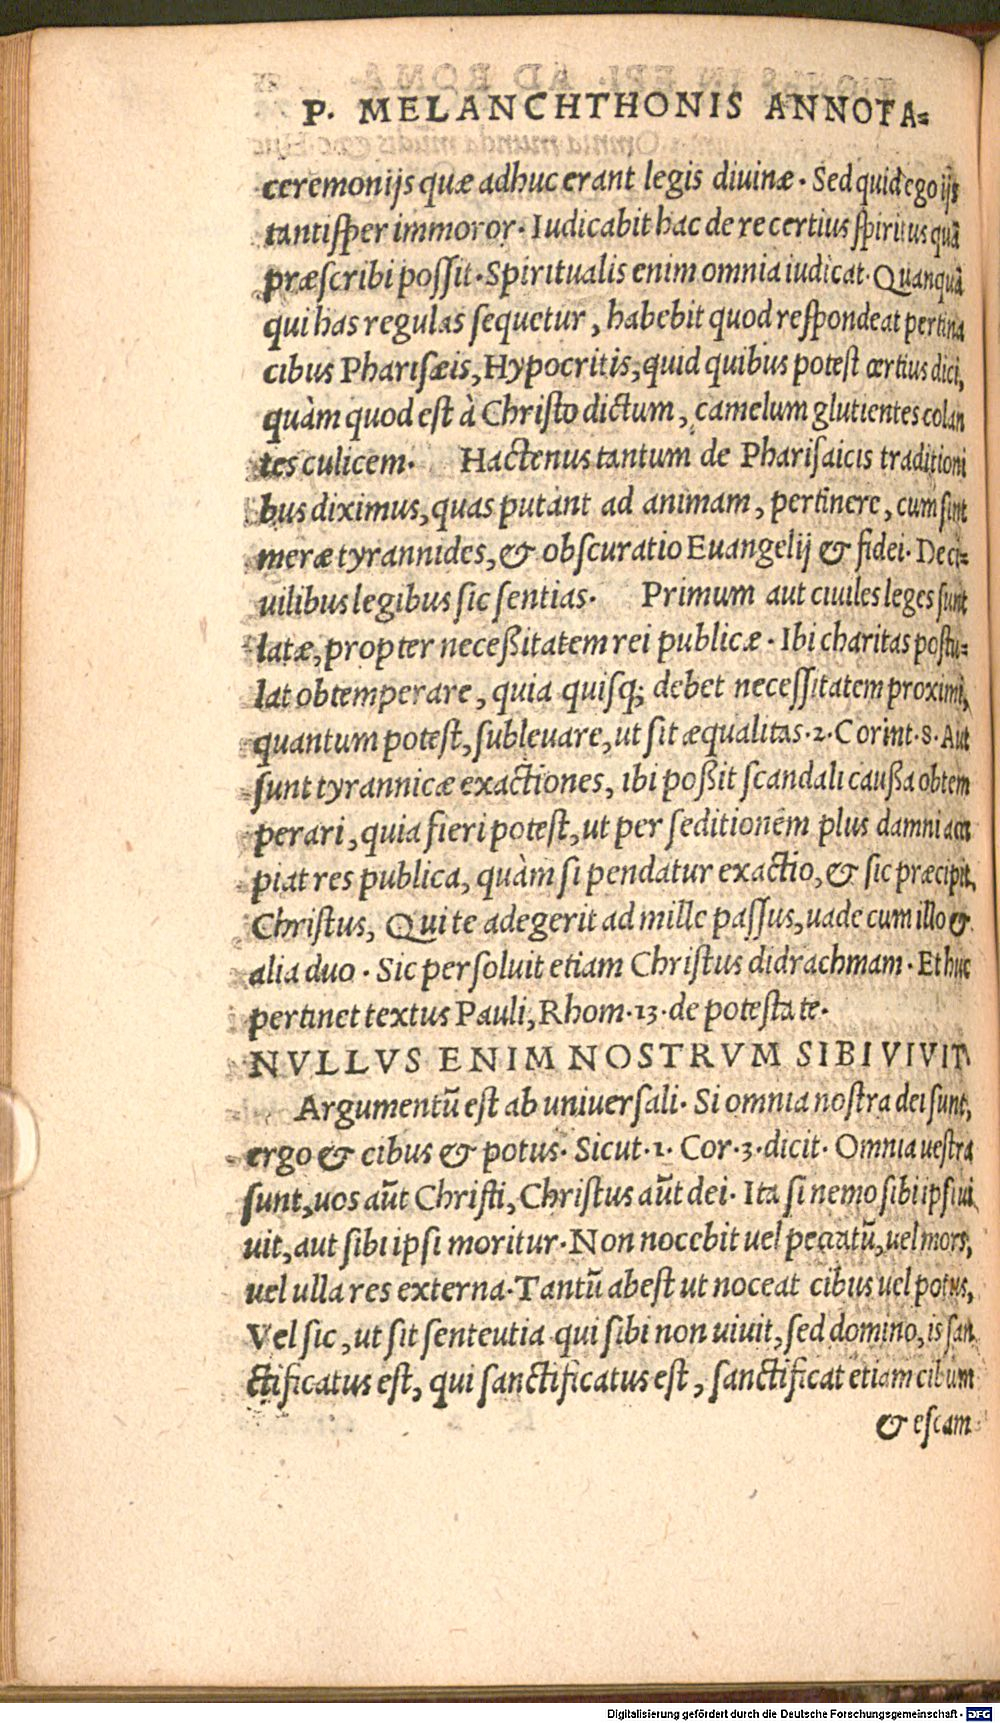 P. MELANCHTHONIS ANNOTA=
ceremonijs quæ adhuc erant legis diuinæ. Sed quid ego ijs
tantisper immoror. Iudicabit hac de re certius spiritus quã
præscribi possit. Spiritualis enim omnia iudicat. Quanquã
qui has regulas sequetur, habebit quod respondeat pertina
cibus Pharisæis, Hypocritis, quid quibus potest certius dici,
quàm quod est à Christo dictum, camelum glutientes colan
tes culicem. Hactenus tantum de Pharisaicis traditioni
bus diximus, quas putant ad animam, pertinere, cum sint
meræ tyrannides, & obscuratio Euangelij & fidei. De ci=
uilibus legibus sic sentias. Primum aut ciuiles leges sunt
latæ, propter neceßitatem rei publicæ. Ibi charitas postu=
lat obtemperare, quia quisq; debet necessitatem proximi,
quantum potest, subleuare, ut sit æqualitas. 2. Corint. 8. Aut
sunt tyrannicæ exactiones, ibi poßit scandali caußa obtem
perari, quia fieri potest, ut per seditionem plus damni acci
piat res publica, quàm si pendatur exactio, & sic præcipit,
Christus, Qui te adegerit ad mille passus, uade cum illo &
alia duo. Sic persoluit etiam Christus didrachmam. Et huc
pertinet textus Pauli, Rhom. 13. de potestate.
NVLLVS ENIM NOSTRVM SIBI VIVIT
Argumentũ est ab uniuersali. Si omnia nostra dei sunt,
ergo & cibus & potus. Sicut. 1. Cor. 3. dicit. Omnia uestra
sunt, uos aũt Christi, Christus aũt dei. Ita si nemo sibi ipsi ui
uit, aut sibi ipsi moritur. Non nocebit uel peccatũ, uel mors,
uel ulla res externa. Tantũ abest ut noceat cibus uel potus,
Vel sic, ut sit senteutia qui sibi non uiuit, sed domino, is san
ctificatus est, qui sanctificatus est, sanctificat etiam cibum
& escam
Digitalisierung gefördert durch die Deutsche Forschungsgemeinschaft - DFG